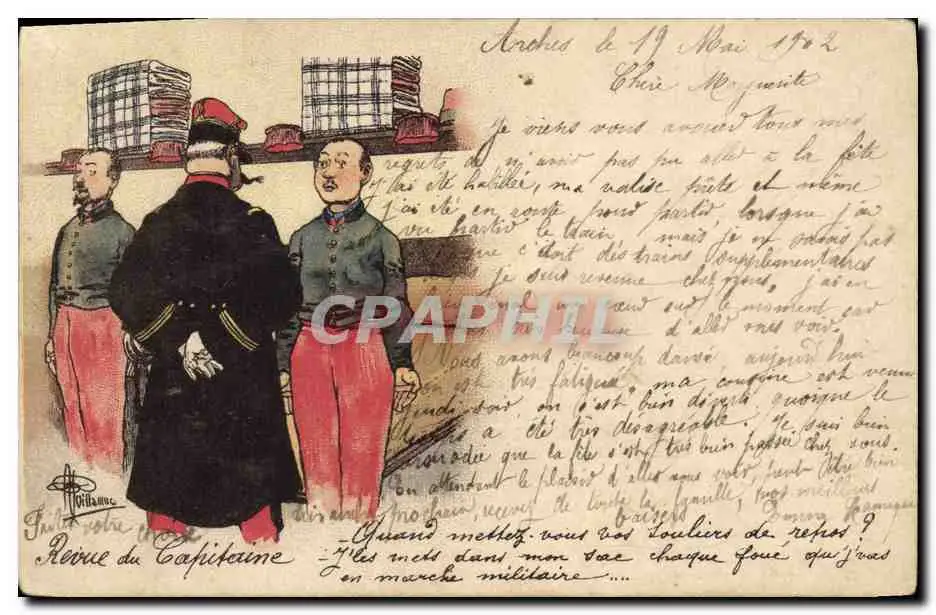 Arches le 19 Mai 1902
Chère Marguerite
Je viens vous avouer tous mes
regrets de n'avoir pas pu aller à la fête
J'ai été habillée, ma valise prête et même
j'ai été en route pour partir, lorsque j'ai
vu partir le train, mais je ne savais pas
que c'était des trains supplémentaires
je suis revenue chez nous, j'ai eu
mal au cœur sur le moment car
d'aller vous voir.
Nous avons beaucoup dansé aujourd'hui
on est très fatigué, ma cousine est venue
lundi soir, on s'est bien diverti quoique le
temps a été très désagréable. Je suis bien
que la fête s'est très bien passée chez vous.
En attendant le plaisir d'aller vous voir, peut être bien
dimanche prochain, recevez de toute la famille, nos meilleurs
baisers
Faites votre
CPAPHIL
Villemur
Revue du Capitaine
- Quand mettez-vous vos souliers de repos ?
- J'les mets dans mon sac chaque foue qu'j'vas
en marche militaire ....